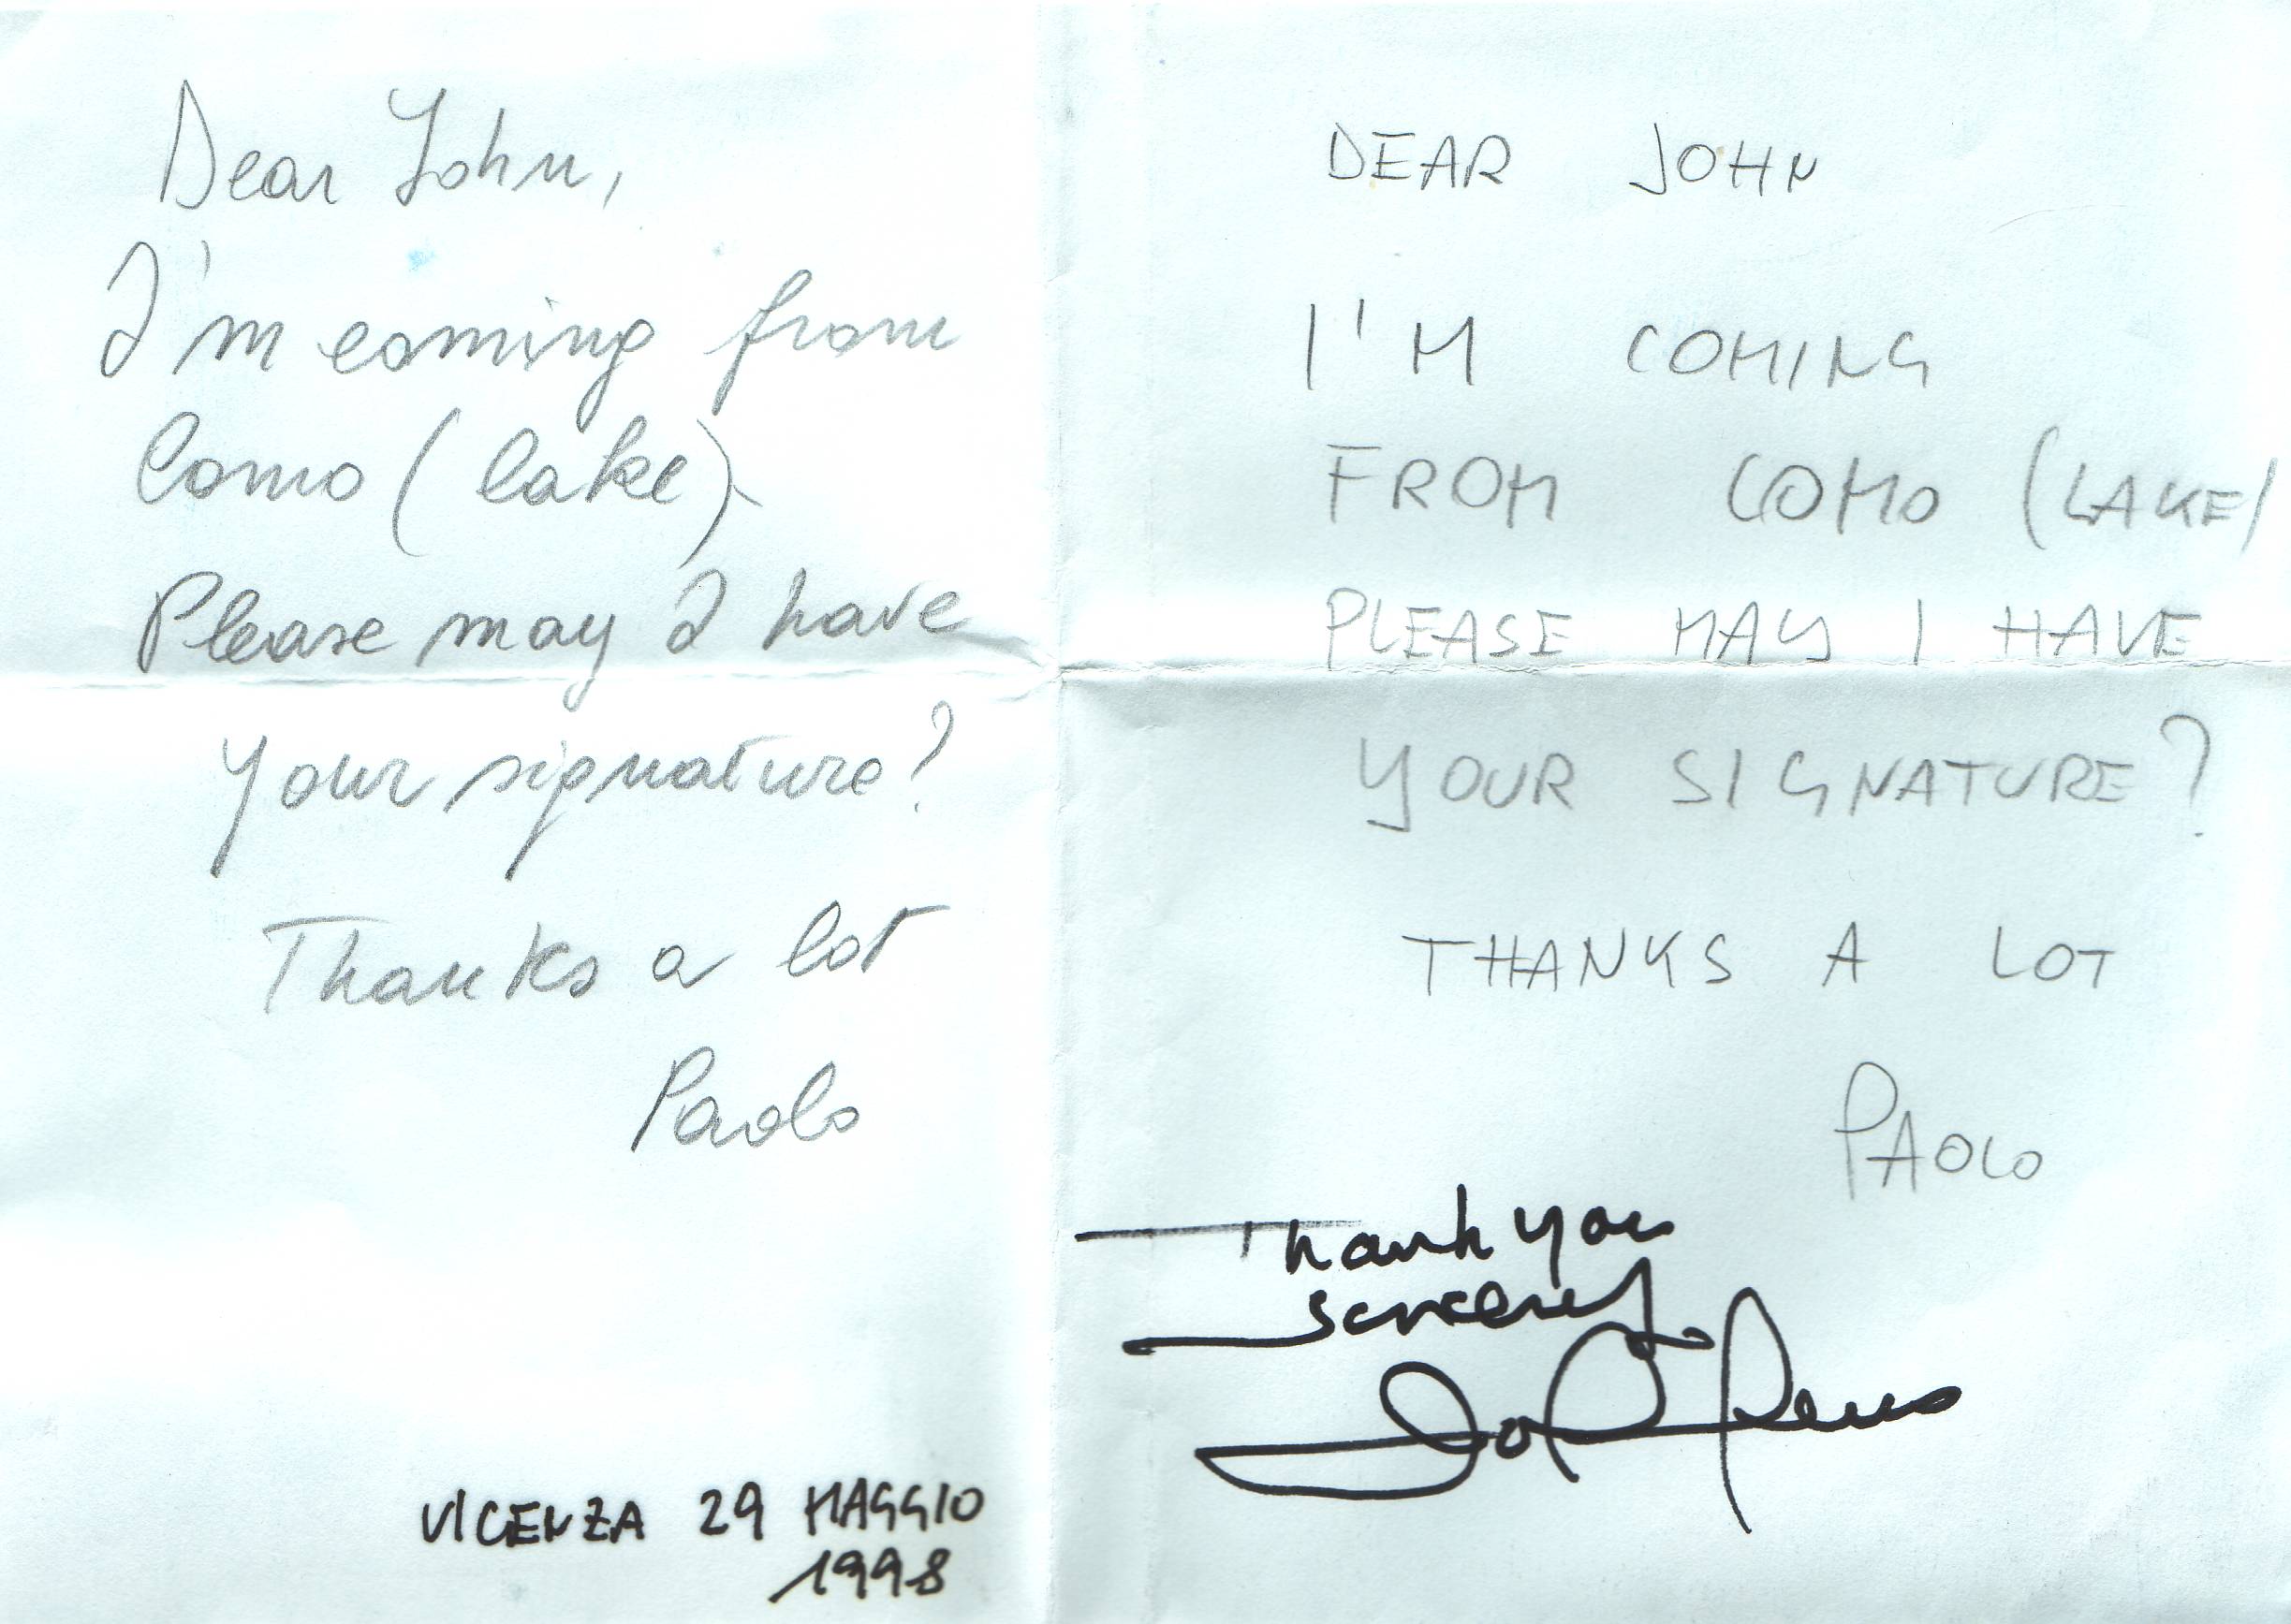 Dear John,
I'm coming from
Como (lake)
Please may I have
your signature?
Thanks a lot
Paolo
VICENZA 29 MAGGIO
1998
DEAR JOHN
I'M COMING
FROM COMO (LAKE)
PLEASE MAY I HAVE
YOUR SIGNATURE?
THANKS A LOT
PAOLO
Thank you
sincerely